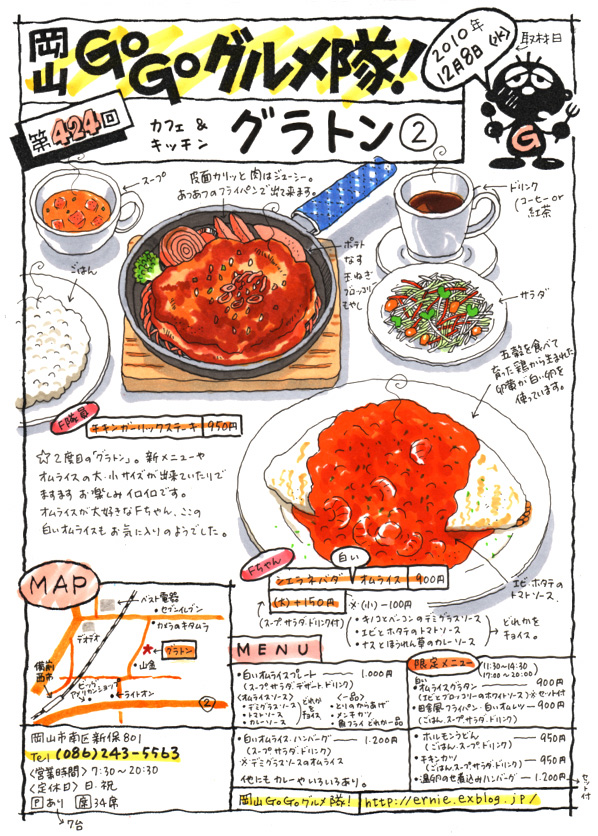 岡山 GoGoグルメ隊!
2010年
12月8日(水)
取材日
第424回
カフェ &
キッチン
グラトン②
G
スープ
皮面カリッと肉はジューシー。
あつあつのフライパンで出て来ます。
ドリンク
(コーヒーor
紅茶
ごはん
ポテト
なす
玉ねぎ
ブロッコリー
もやし
サラダ
五穀を食べて
育った鶏から生まれた
卵黄が白い卵を
使っています。
F隊員
チキンガーリックステーキ 950円
☆2度目の「グラトン」。新メニューや
オムライスの大・小サイズが出来ていたりで
ますますお楽しみイロイロです。
オムライスが大好きなFちゃん、ここの
白いオムライスもお気に入りのようでした。
Fちゃん
白い
シエラネバダオムライス 900円
エビ・ホタテの
トマトソース
(大)+150円 ※(小)-100円
(スープ サラダ・ドリンク付)
・キノコとベーコンのデミグラスソース
・エビとホタテのトマトソース
・ナスとほうれん草のカレーソース
どれかを
チョイス。
MAP
ベスト電器
セブンイレブン
カメラのキタムラ
デオデオ
グラトン
山金
備前
西市
ビッグ
アメリカンショップ
ライトオン
②
岡山市南区新保801
Tel (086)243-5563
〈営業時間〉7:30〜20:30
〈定休日〉日.祝
Pあり 席34席
7台
MENU
・白いオムライスプレート — 1.000円
(スープ サラダ・デザート・ドリンク)
〈オムライスソース〉
・デミグラスソース
・トマトソース
・カレーソース
どれかを
チョイス
〈一品〉
・とりのからあげ
・メンチカツ
・魚フライ どれか一品
・白いオムライス.ハンバーグ — 1.200円
(スープ サラダ.ドリンク)
※デミグラスソースのオムライス
他にもカレーやいろいろあり。
限定メニュー
(11:30〜14:30)
17:00〜20:00
白い
・オムライスグラタン — 900円
(エビとブロッコリーのホワイトソース)※セット付
・田舎風フライパン・白いオムレツ — 900円
(ごはん.スープ.サラダ.ドリンク)
・ホルモンうどん — 950円
(ごはん・スープ・ドリンク)
・チキンカツ — 950円
(ごはん.スープ.サラダ.ドリンク)
・温卵のせ煮込みハンバーグ — 1.200円
セット付
岡山GoGoグルメ隊! http://ernie.exblog.jp/